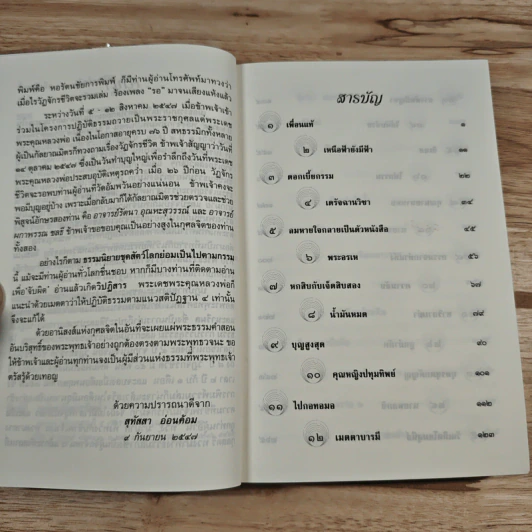 พิมพ์คือ หอรัตนชัยการพิมพ์ ก็มีท่านผู้อ่านโทรศัพท์มาทวงว่า
เมื่อไรวัฏจักรชีวิตจะรวมเล่ม ร้องเพลง “รอ” มาจนเสียงแห้งแล้ว
ระหว่างวันที่ ๕ - ๑๒ สิงหาคม ๒๕๔๗ เมื่อข้าพเจ้าเข้า
ร่วมในโครงการปฏิบัติธรรมถวายเป็นพระราชกุศลแด่พระเดช
พระคุณหลวงพ่อ เนื่องในโอกาสอายุครบ ๗๖ ปี สหธรรมิกทั้งหลาย
ผู้เป็นกัลยาณมิตรก็ทวงถามเรื่องวัฏจักรชีวิต ข้าพเจ้าสัญญาว่าวันที่
๑๔ ตุลาคม ๒๕๔๗ ซึ่งเป็นวันทำบุญใหญ่เพื่อรำลึกถึงวันที่พระเดช
พระคุณหลวงพ่อประสบอุบัติเหตุรถคว่ำ เมื่อ ๒๖ ปีก่อน วัฏจักร
ชีวิตจะรอพบท่านผู้อ่านที่วัดอัมพวันอย่างแน่นอน ข้าพเจ้าคงจะ
พอมีบุญอยู่บ้าง เพราะเมื่อกลับมาก็ได้กัลยาณมิตรช่วยตรวจและช่วย
พิสูจน์อักษรสองท่าน คือ อาจารย์รัตนา อุณหะสุวรรณ์ และ อาจารย์
ผกาพรรณ ข้าพเจ้าขอขอบคุณเป็นอย่างสูงในกุศลจิตของท่าน
ทั้งสอง
อย่างไรก็ตาม ธรรมนิยายชุดสัตว์โลกย่อมเป็นไปตามกรรม
นี้ แม้จะมีท่านผู้อ่านทั่วโลกชื่นชอบ หากก็มีบางท่านที่ติดตามอ่าน
เพื่อ‘จับผิด’ อ่านแล้วเกิดวิปฏิสาร พระเดชพระคุณหลวงพ่อก็
แนะนำด้วยเมตตาว่าให้ปฏิบัติธรรมตามแนวสติปัฏฐาน ๔ เท่านั้น
จึงจะแก้ได้
ด้วยอานิสงส์แห่งกุศลจิตในอันที่จะเผยแผ่พระธรรมคำสอน
อันบริสุทธิ์ของพระพุทธเจ้าอย่างถูกต้องตรงตามพระพุทธวจนะ ขอ
ให้ข้าพเจ้าและผู้อ่านทุกท่านจงเป็นผู้มีส่วนแห่งธรรมที่พระพุทธเจ้า
ตรัสรู้ด้วยเทอญ
ด้วยความปรารถนาดีจาก
สุทัสสา อ่อนค้อม
๙ กันยายน ๒๕๔๗
สารบัญ
๑ เพื่อนแท้ ๑
๒ เหนือฟ้ายังมีฟ้า ๑๑
๓ ดอกเบี้ยกรรม ๒๒
๔ เดรัจฉานวิชา ๓๔
๕ ลมหายใจกลายเป็นตัวหนังสือ ๔๕
๖ พระอรเห ๕๖
๗ หกสิบกับเจ็ดสิบสอง ๖๗
๘ น้ำมันหมด ๗๙
๙ บุญสูงสุด ๙๐
๑๐ คุณหญิงปทุมทิพย์ ๑๐๑
๑๑ ไปกอทอมอ ๑๑๒
๑๒ เมตตาบารมี ๑๒๓